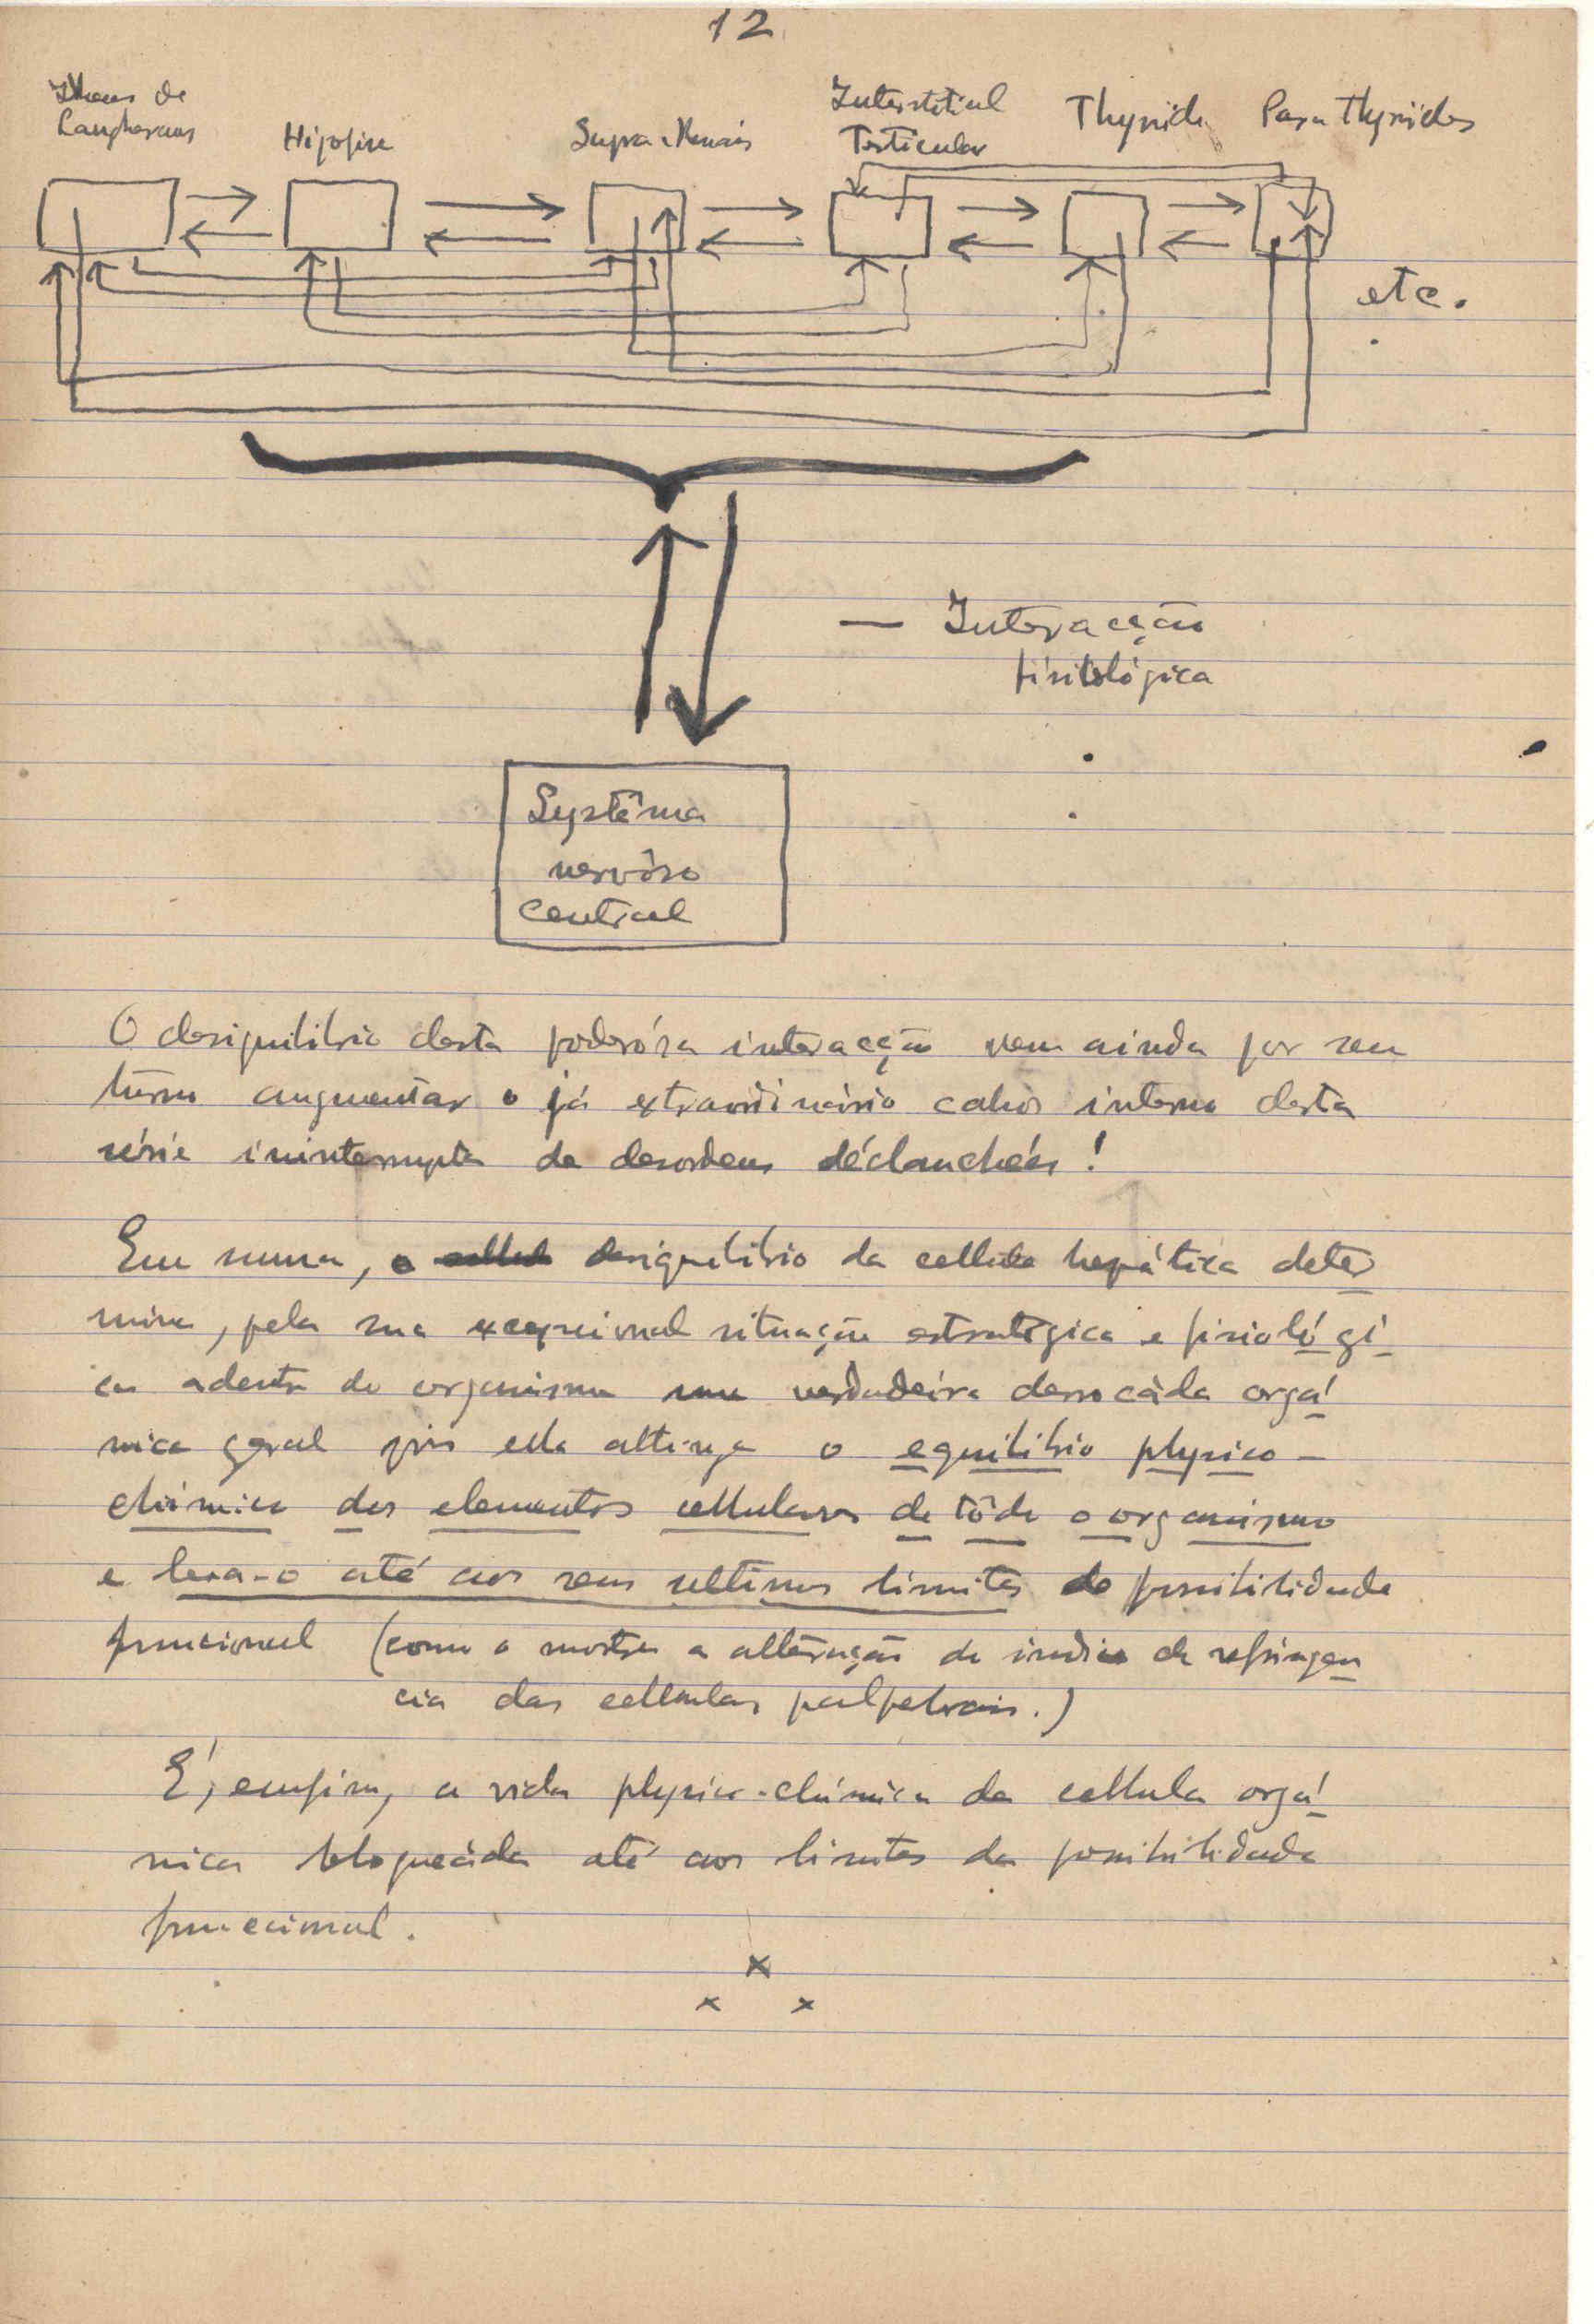 12
Ilheus de
Langherans
Hipofise
Supra-Renais
Interstitial
Testicular
Thyroide
Para Thyroides
etc.
— Interacção
fisiológica
Systêma
nervôso
central
O desiquilibrio desta poderósa interacção vem ainda por seu
turno augmentar o já extraordinário cahos interno desta
série ininterrupta de desordens déclanchées!
Em suma, o desiquilibrio da cellula hepática deter
mina, pela sua excepcional situação estratégica e fisiológi
ca adentro do organismo uma verdadeira derrocáda orgá
nica geral pois ella attinge o equilibrio physico-
chímico dos elementos cellulares de tôdo o organismo
e leva-o até aos seus ultimos limites de possibilidade
funcional (como o mostra a alteração do indice de refringen
cia das cellulas palpebrais.)
É, emfim, a vida physico-chímica da cellula orgá
nica bloqueáda até aos limites da possibilidade
funccional.
x
x x